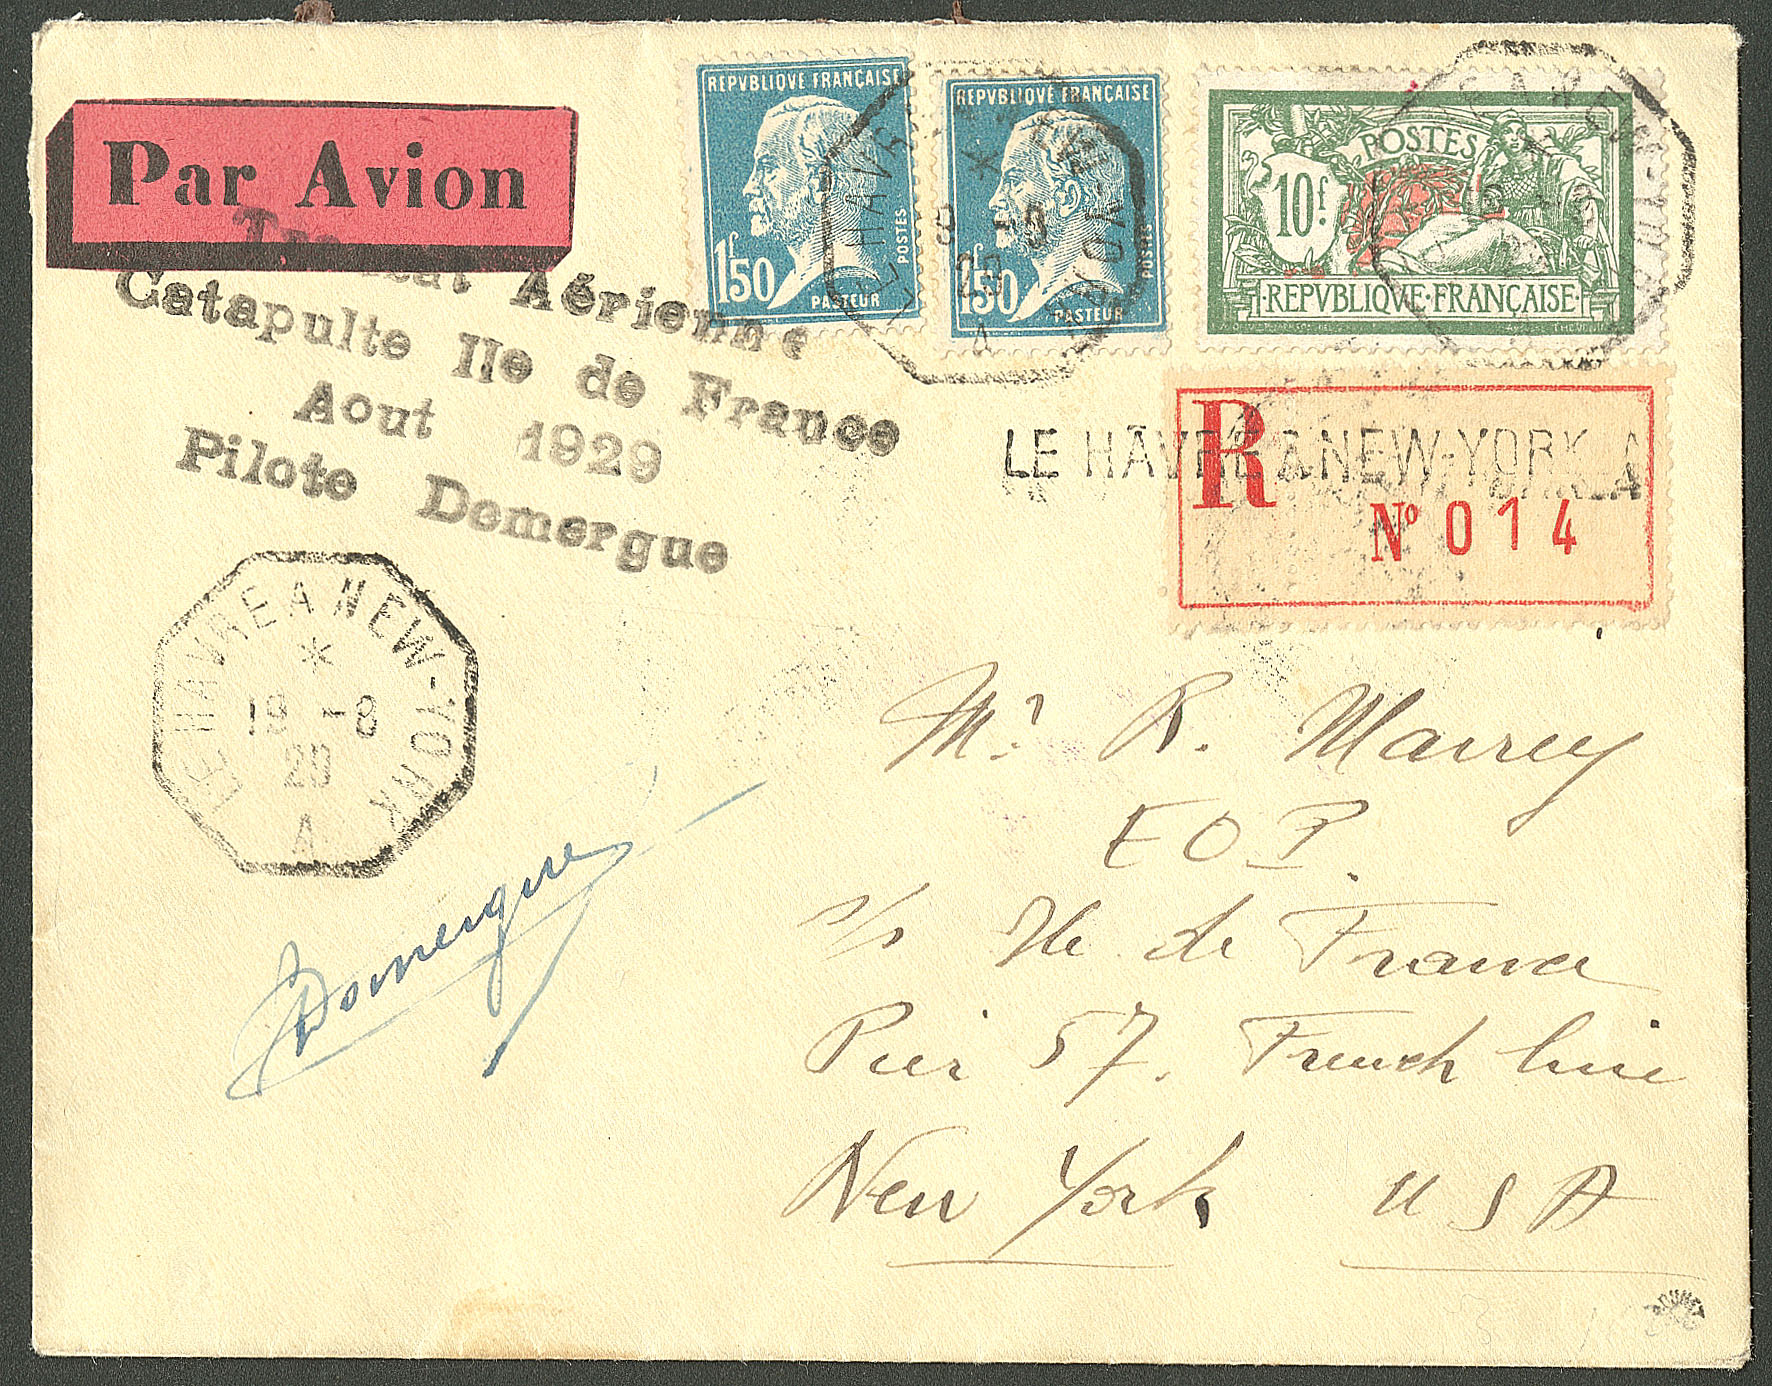 Par Avion
Aérienne
Catapulte Ile de France
Aout 1929
Pilote Demergue
REPVBLIQVE FRANÇAISE
1F50
POSTES
PASTEUR
REPVBLIQVE FRANÇAISE
1F50
POSTES
PASTEUR
POSTES
10F.
REPVBLIQVE·FRANÇAISE
LE HAVRE A NEW-YORK
LE HÂVRE À NEW-YORK A
R
No 014
LE HAVRE A NEW-YORK
19 -8
29
A
Domergue
Mr. R. Mairey
E O P.
s/s Ile de France
Pier 57. French line
New York U S A
ROUMET